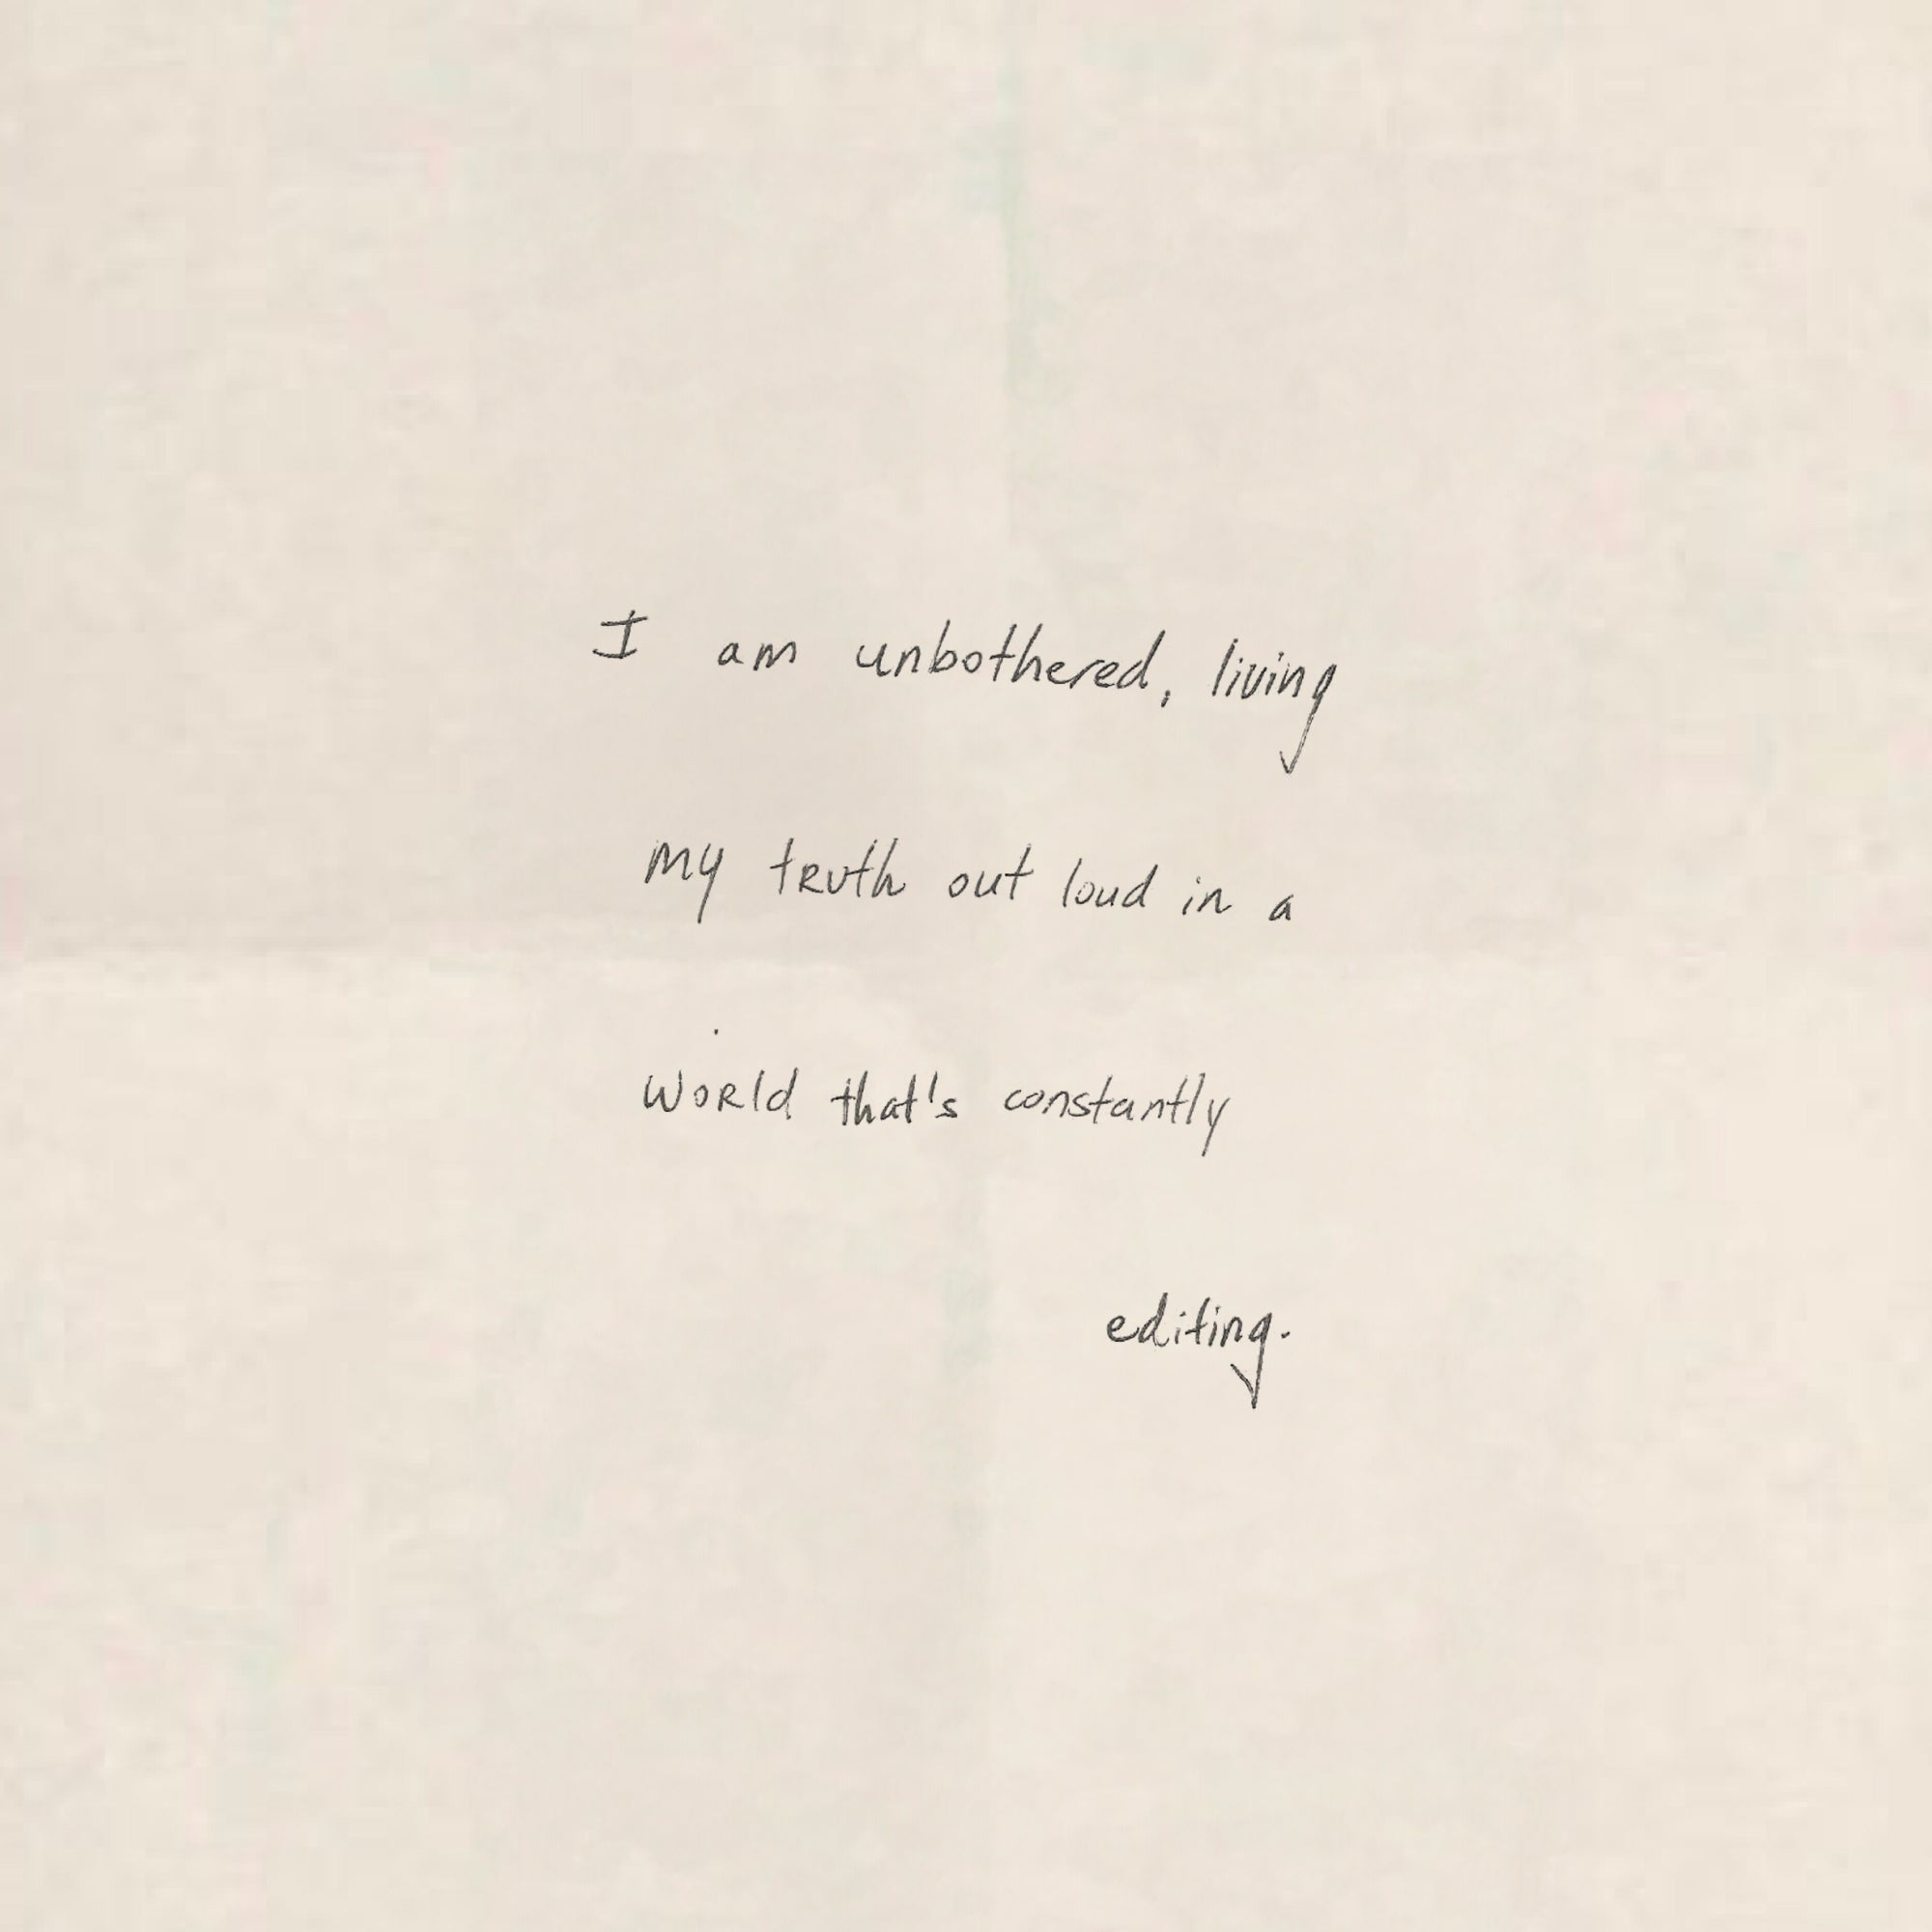 I am unbothered, living
my truth out loud in a
world that's constantly
editing.